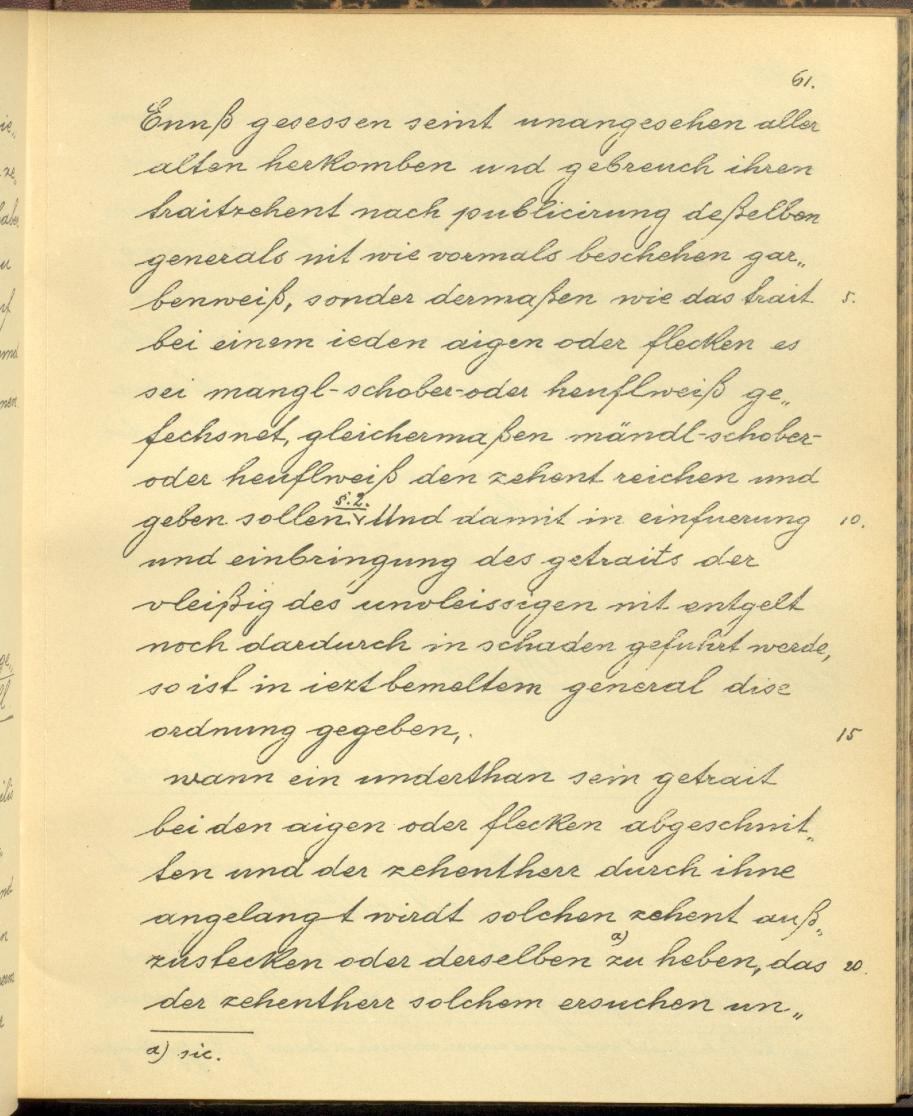 61.
Ennß gesessen seint unangesehen aller
alten herkomben und gebreuch ihren
traitzehent nach publicirung deßelben
generals nit wie vormals beschehen gar„
benweiß, sonder dermaßen wie das trait 5.
bei einem ieden aigen oder flecken es
sei mangl-schober-oder heuflweiß ge„
fechsnet, gleichermaßen mändl-schober-
oder heuflweiß den zehent reichen und
geben sollen. §.2. Und damit in einfuerung 10.
und einbringung des getraits der
vleißig des unvleissigen nit entgelt
noch dardurch in schaden gefuhrt werde,
so ist in iezt bemeltem general dise
ordnung gegeben, 15
wann ein underthan sein getrait
bei den aigen oder flecken abgeschnit„
ten und der zehentherr durch ihne
angelangt wirdt solchen zehent auß„
zustecken oder derselben a) zu heben, das 20.
der zehentherr solchem ersuchen un„
a) sic.